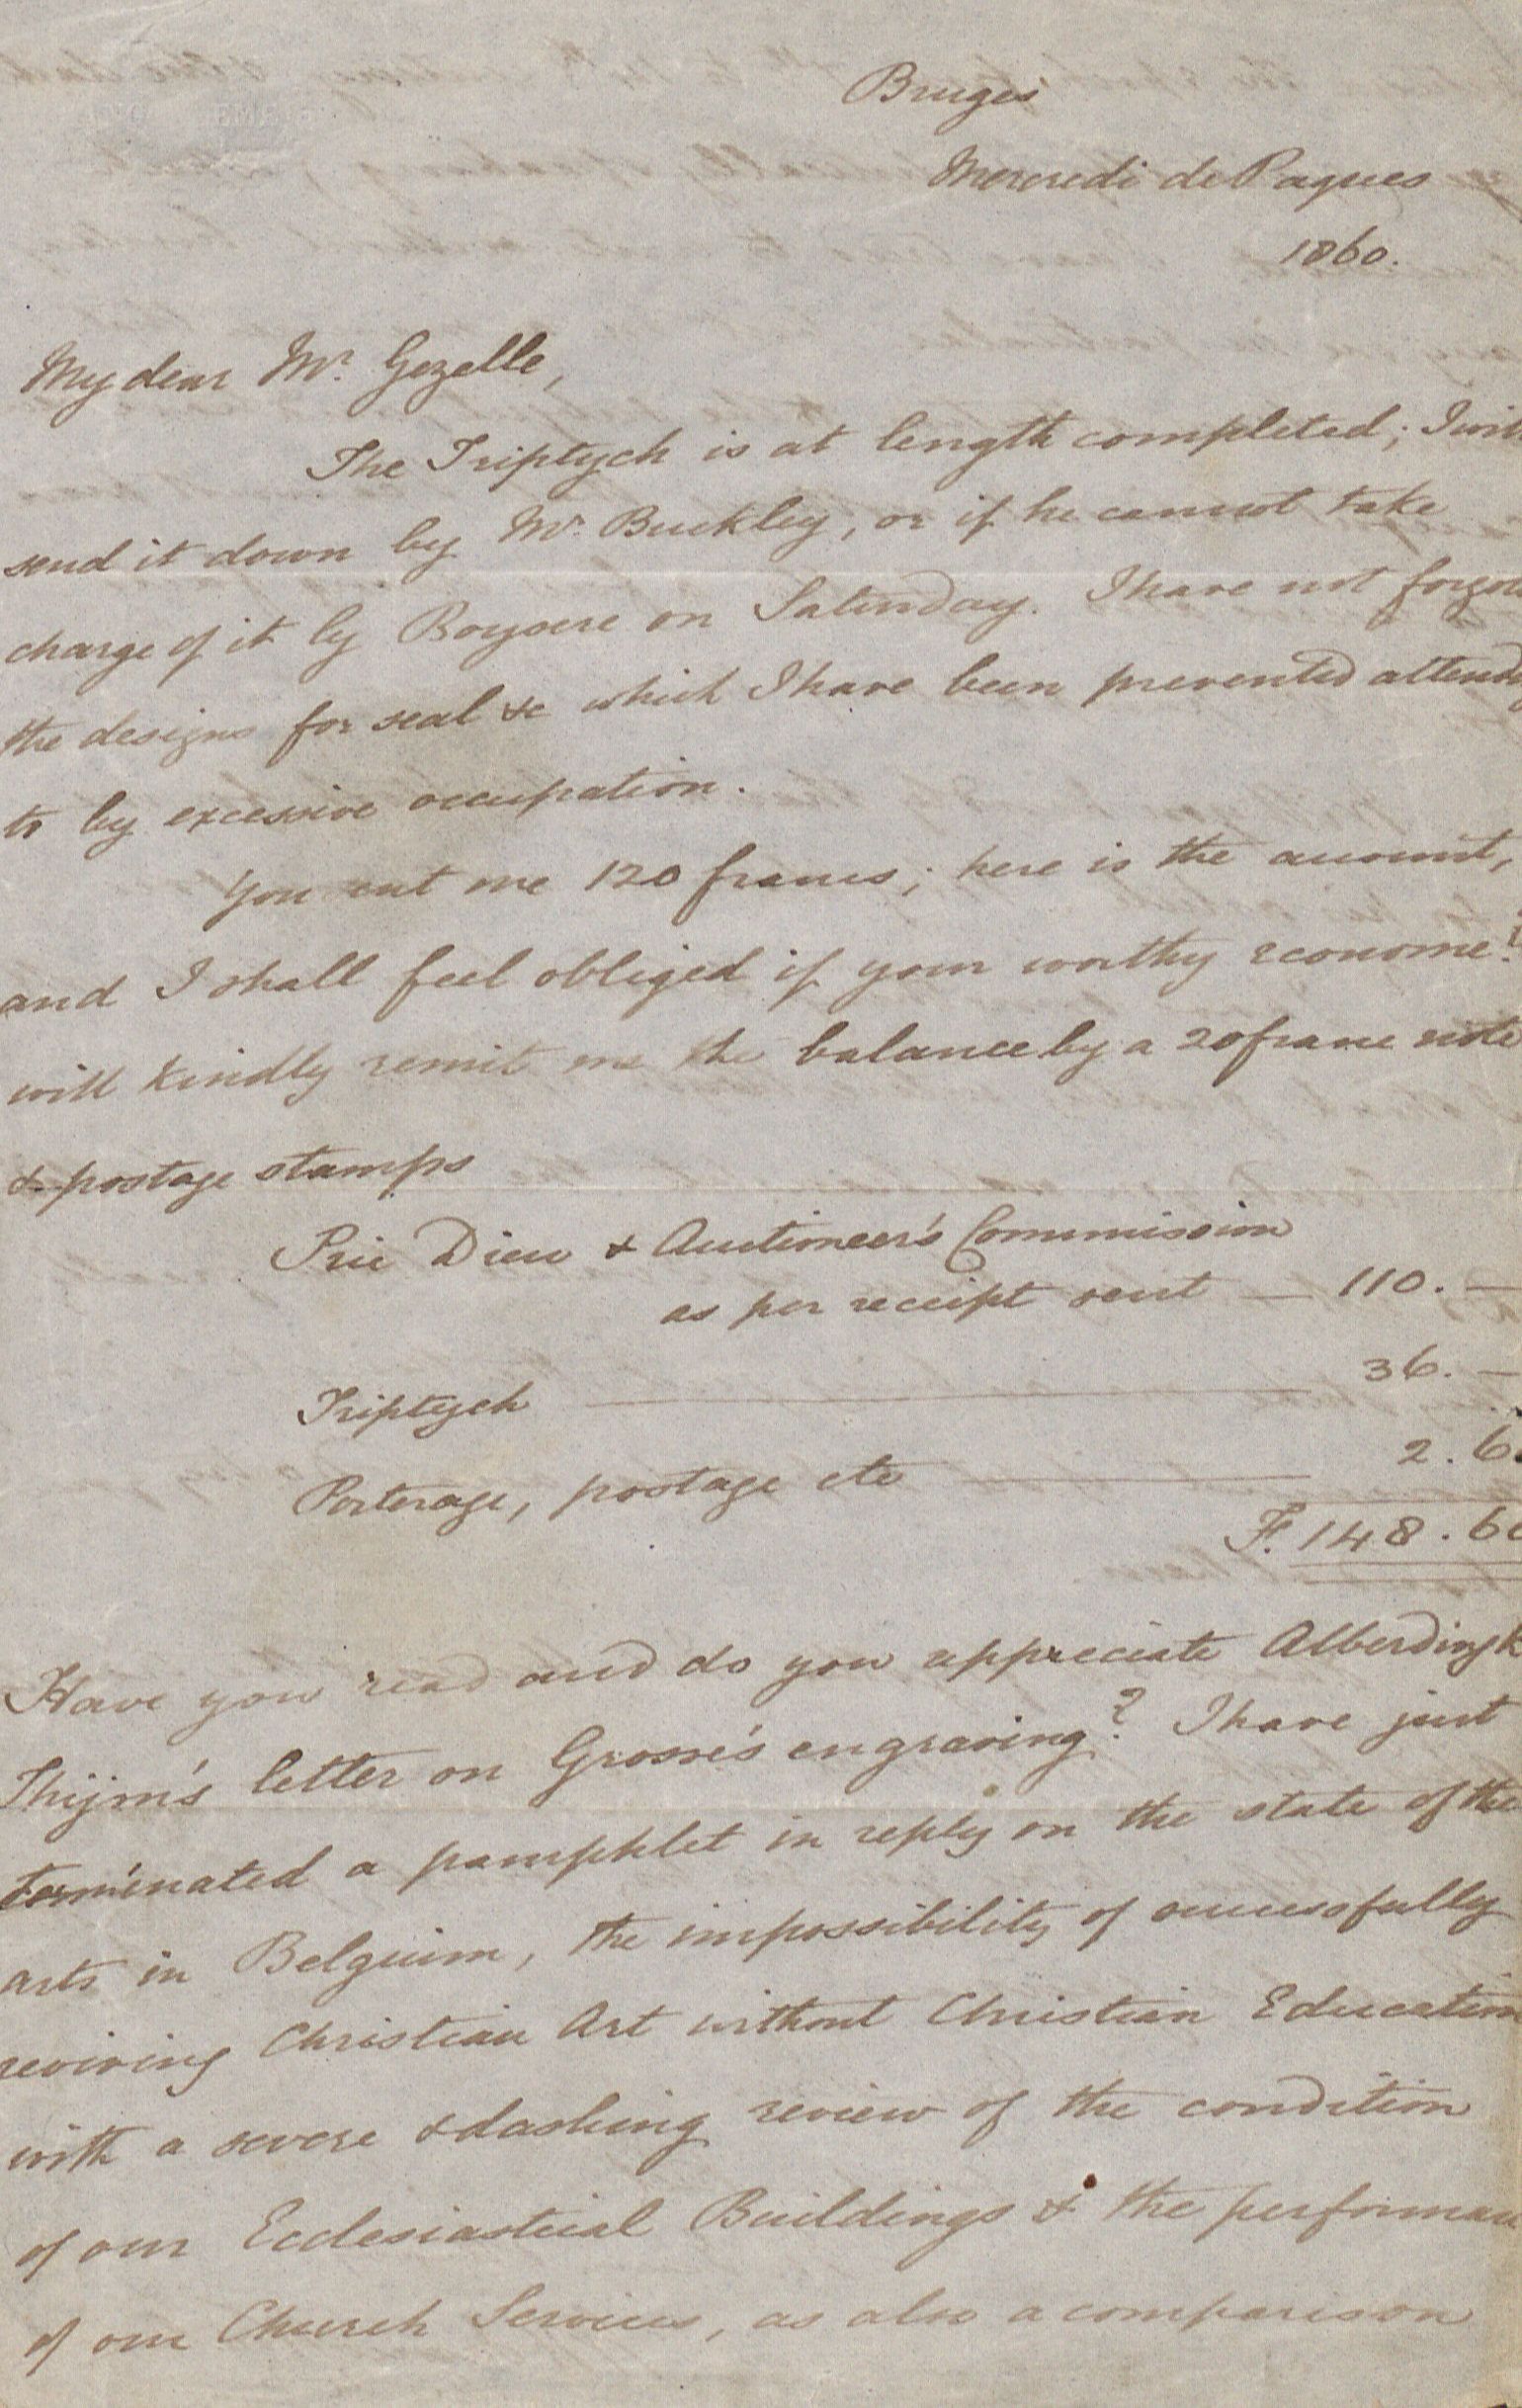 Bruges
Mercredi de Paques
1860.
My dear Mr. Gezelle,
The Triptych is at length completed; I will
send it down by Mr. Buckley, or if he cannot take
charge of it by Boysere on Saturday. I have not forgot
the designs for seal &c which I have been prevented attendg
to by excessive occupation.
You sent me 120 francs; here is the amount,
and I shall feel obliged if your worthy econome?
will kindly remit me the balance by a 20 franc note
& postage stamps
Prie Dieu & Auctioneer's Commission
as per receipt sent — 110. —
Triptych — 36. —
Porterage, postage etc — 2.6
F. 148.60
Have you read and do you appreciate Alberdingk
Thijm's letter on Grosse's engraving? I have just
terminated a pamphlet in reply on the state of the
arts in Belguim, the impossibility of successfully
reviving Christian Art without Christian Education
with a severe & dashing review of the condition
of our Ecclesiastical Buildings & the performan
of our Church Services, as also a comparison